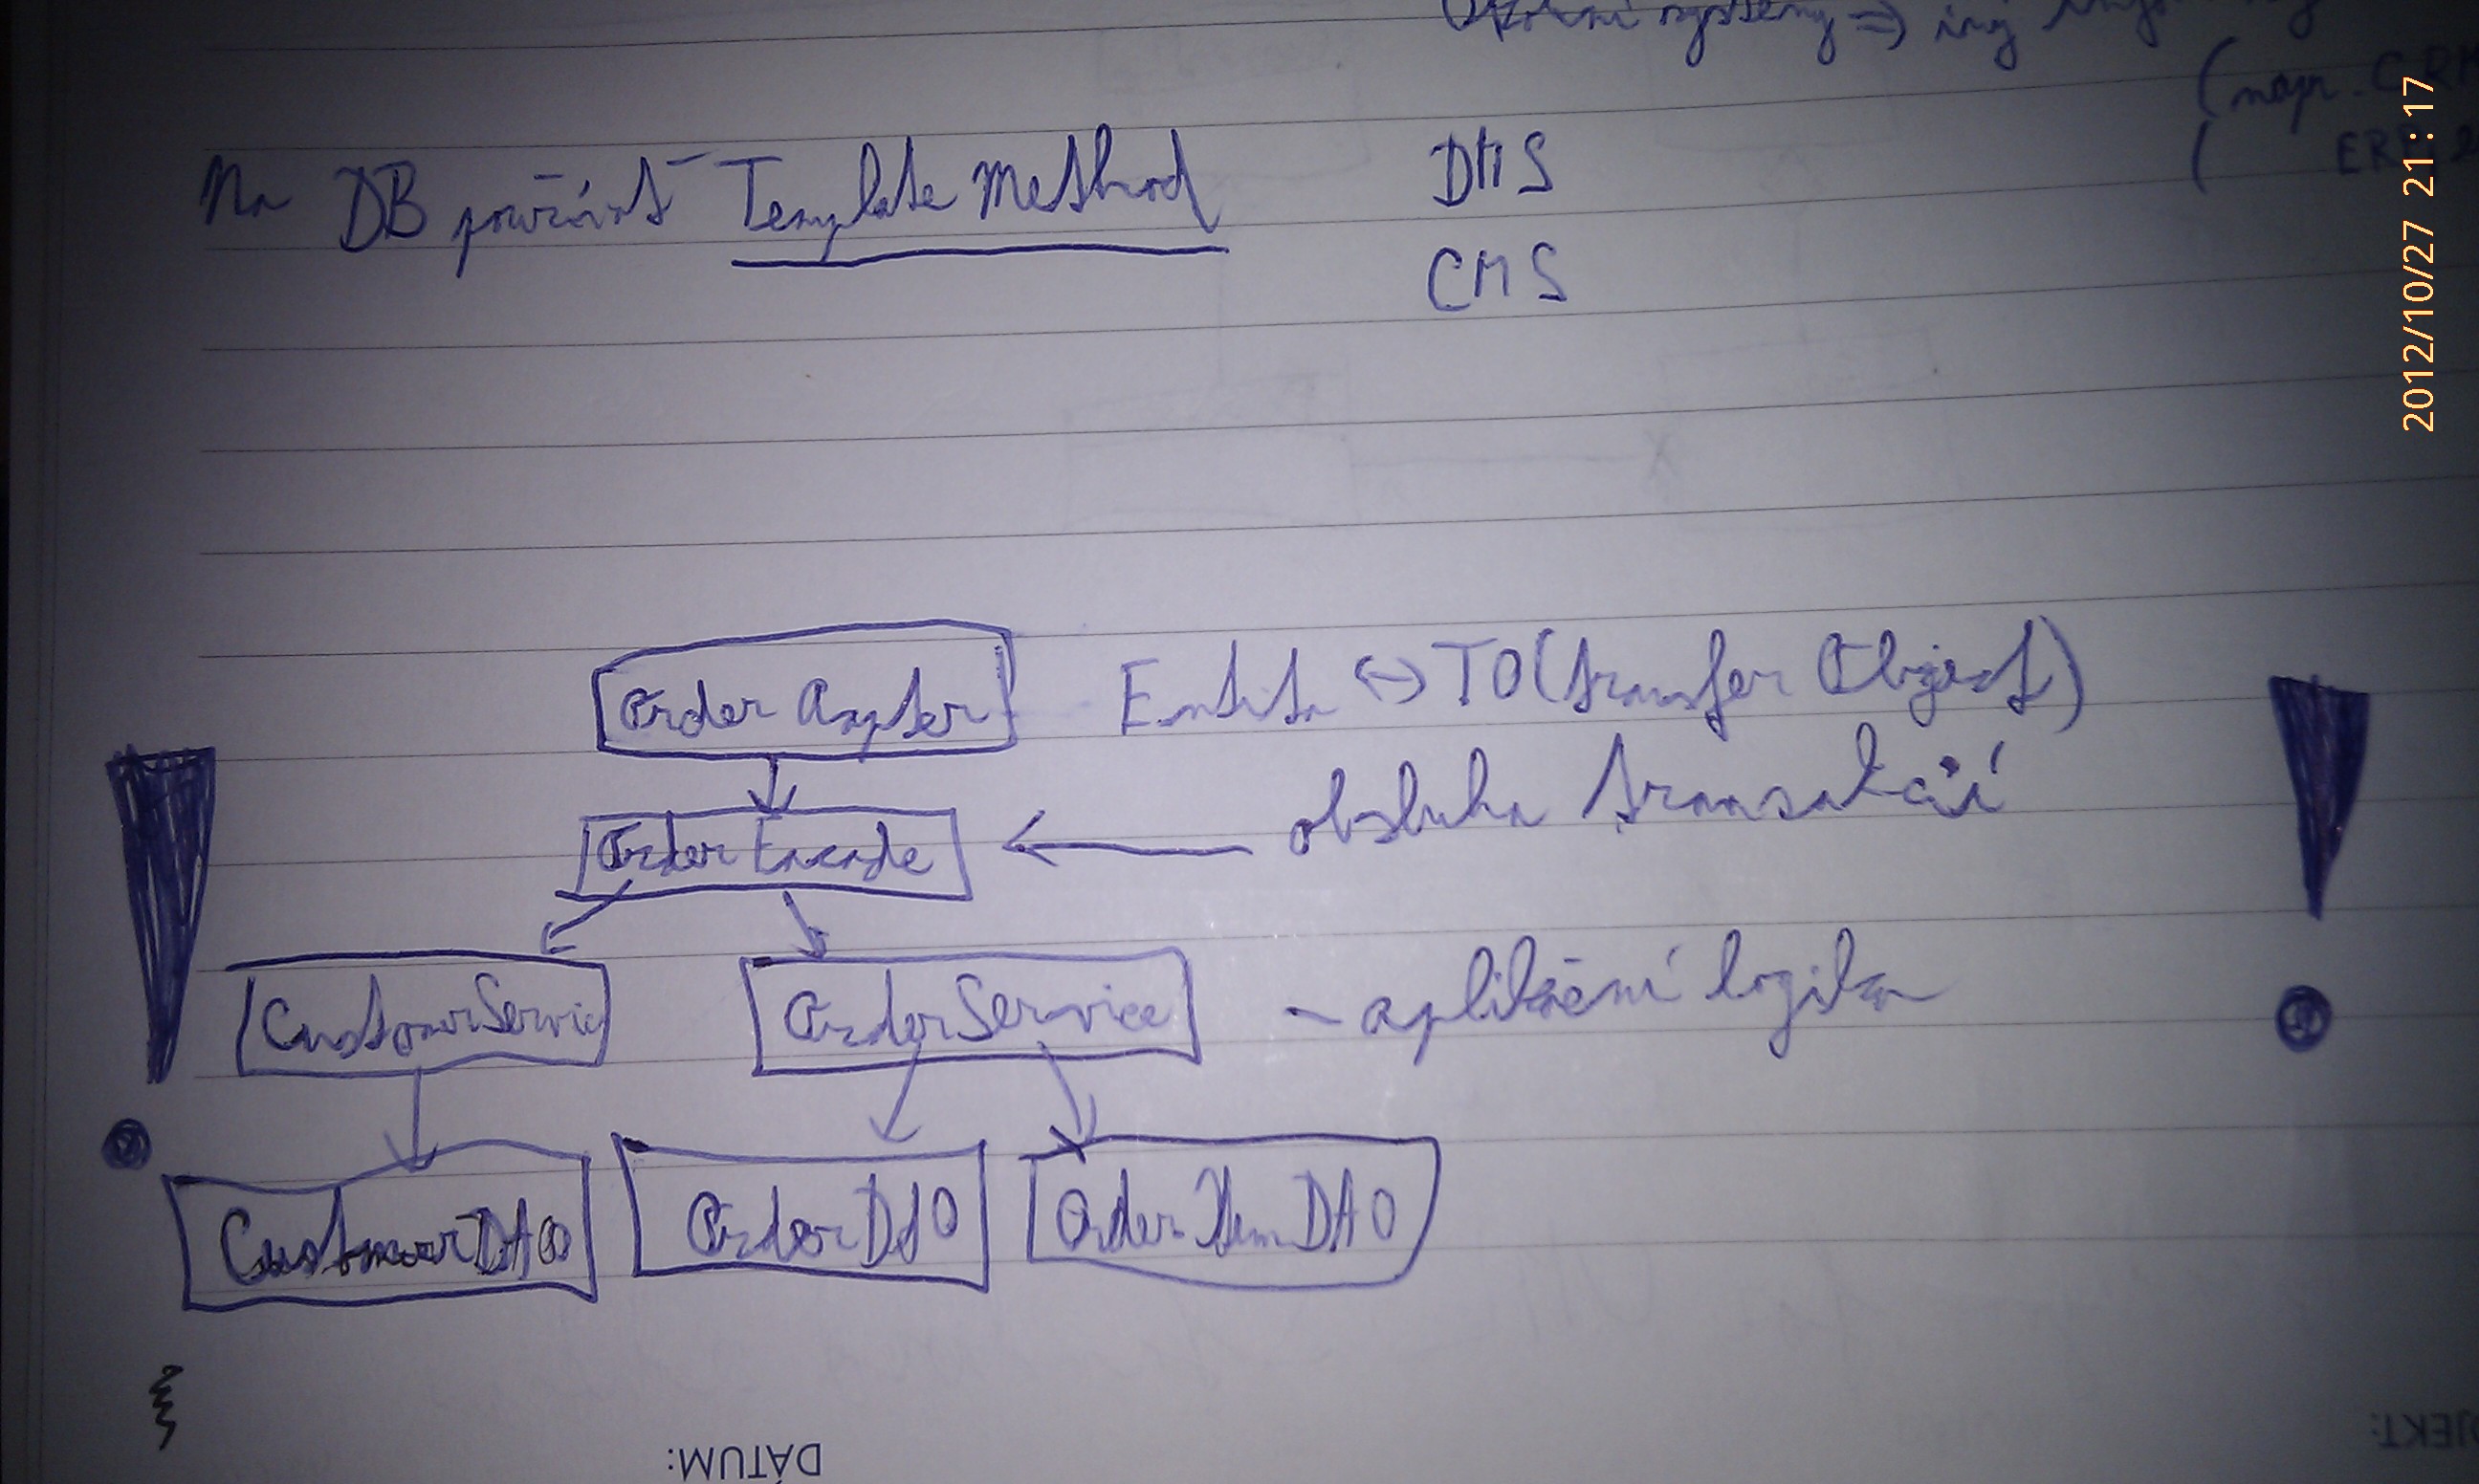 systémy => iný
(napr. CRM
Na DB používať Template Method
DMS
CMS
2012/10/27 21:17
Order Aapter
Entita <-> TO (Transfer Object)
Order Facade
obsluha transakcií
CustomerService
OrderService
- aplikační logika
CustomerDAO
OrderDAO
OrderItemDAO
DÁTUM: